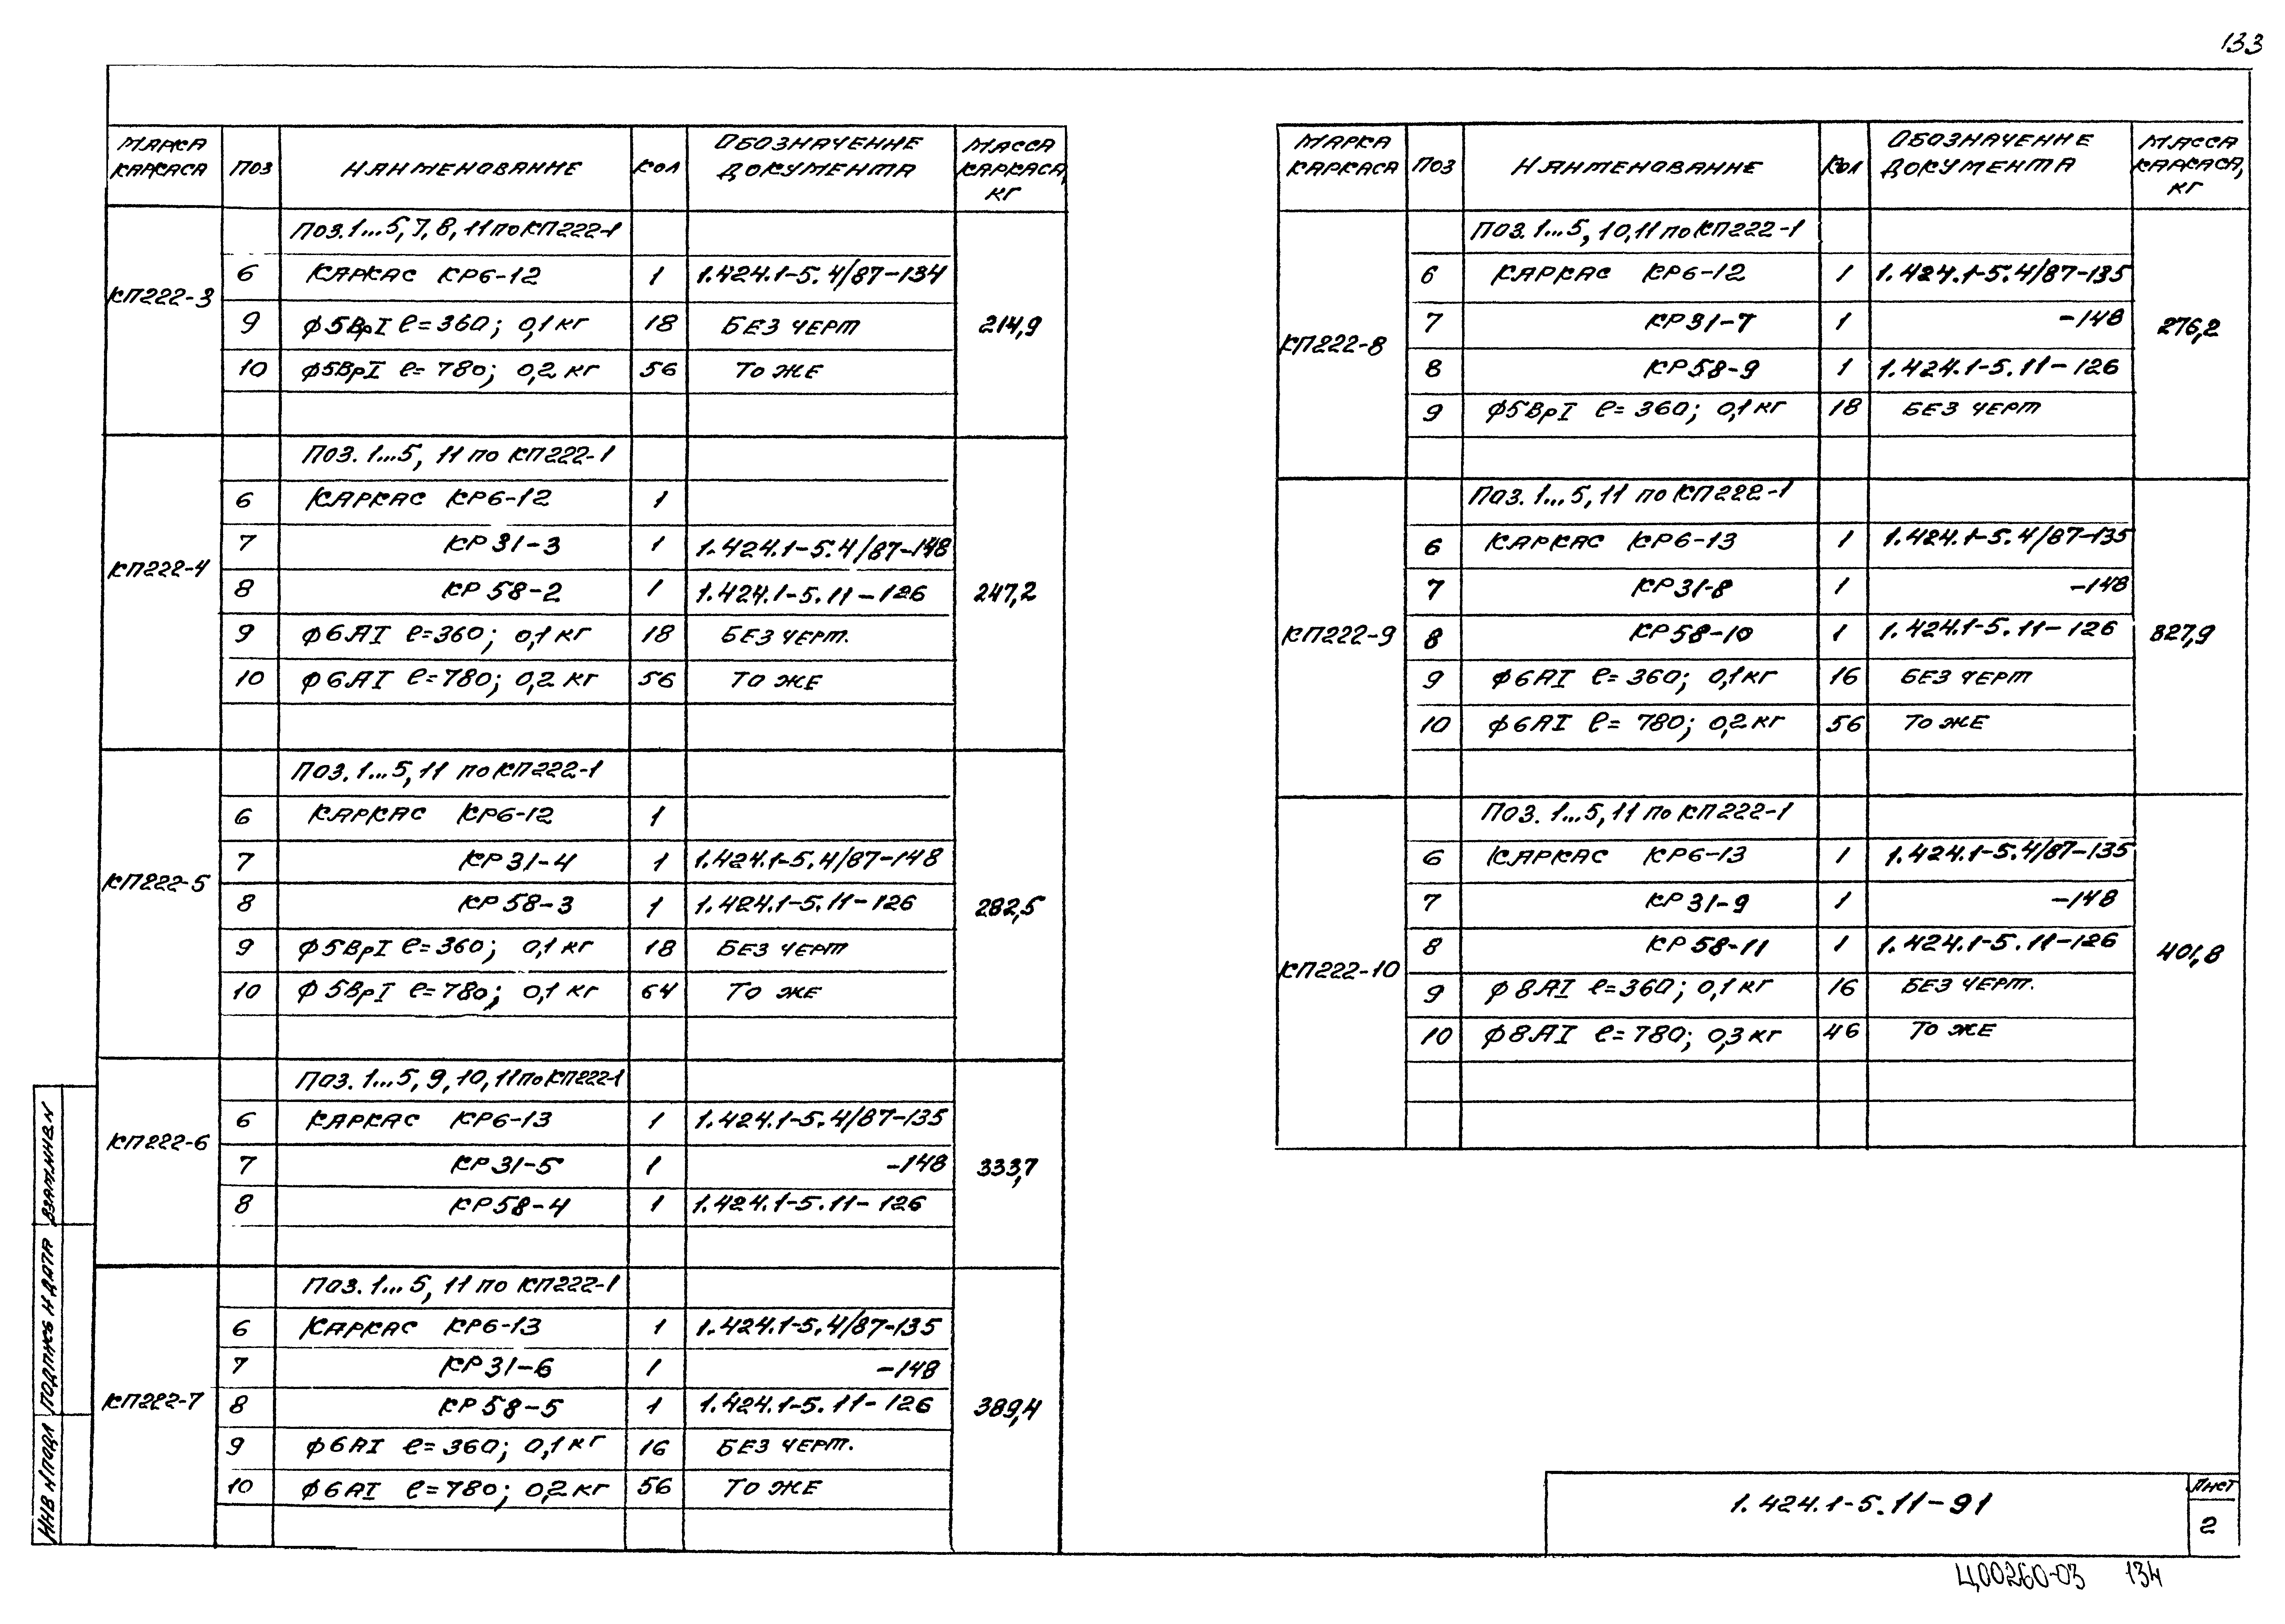 133
МАРКА КАРКАСА ПОЗ НАИМЕНОВАНИЕ КОЛ ОБОЗНАЧЕНИЕ ДОКУМЕНТА МАССА КАРКАСА, КГ
КП222-3
ПОЗ. 1...5, 7, 8, 11 ПО КП222-1
6 КАРКАС КР6-12 1 1.424.1-5.4/87-134
9 ф5ВрI ℓ=360; 0,1 кг 18 БЕЗ ЧЕРТ 214,9
10 ф5ВрI ℓ=780; 0,2 кг 56 ТО ЖЕ
КП222-4
ПОЗ. 1...5, 11 ПО КП222-1
6 КАРКАС КР6-12 1
7 КР31-3 1 1.424.1-5.4/87-148
8 КР58-2 1 1.424.1-5.11-126 247,2
9 ф6АI ℓ=360; 0,1 кг 18 БЕЗ ЧЕРТ.
10 ф6АI ℓ=780; 0,2 кг 56 ТО ЖЕ
КП222-5
ПОЗ. 1...5, 11 ПО КП222-1
6 КАРКАС КР6-12 1
7 КР31-4 1 1.424.1-5.4/87-148
8 КР58-3 1 1.424.1-5.11-126 282,5
9 ф5ВрI ℓ=360; 0,1 кг 18 БЕЗ ЧЕРТ
10 ф5ВрI ℓ=780; 0,1 кг 64 ТО ЖЕ
КП222-6
ПОЗ. 1...5, 9, 10, 11 ПО КП222-1
6 КАРКАС КР6-13 1 1.424.1-5.4/87-135
7 КР31-5 1 -148 333,7
8 КР58-4 1 1.424.1-5.11-126
КП222-7
ПОЗ. 1...5, 11 ПО КП222-1
6 КАРКАС КР6-13 1 1.424.1-5.4/87-135
7 КР31-6 1 -148
8 КР58-5 1 1.424.1-5.11-126 389,4
9 ф6АI ℓ=360; 0,1 кг 16 БЕЗ ЧЕРТ.
10 ф6АI ℓ=780; 0,2 кг 56 ТО ЖЕ
МАРКА КАРКАСА ПОЗ НАИМЕНОВАНИЕ КОЛ ОБОЗНАЧЕНИЕ ДОКУМЕНТА МАССА КАРКАСА, КГ
КП222-8
ПОЗ. 1...5, 10, 11 ПО КП222-1
6 КАРКАС КР6-12 1 1.424.1-5.4/87-135
7 КР31-7 1 -148 276,2
8 КР58-9 1 1.424.1-5.11-126
9 ф5ВрI ℓ=360; 0,1 кг 18 БЕЗ ЧЕРТ
КП222-9
ПОЗ. 1...5, 11 ПО КП222-1
6 КАРКАС КР6-13 1 1.424.1-5.4/87-135
7 КР31-8 1 -148
8 КР58-10 1 1.424.1-5.11-126 827,9
9 ф6АI ℓ=360; 0,1 кг 16 БЕЗ ЧЕРТ
10 ф6АI ℓ=780; 0,2 кг 56 ТО ЖЕ
КП222-10
ПОЗ. 1...5, 11 ПО КП222-1
6 КАРКАС КР6-13 1 1.424.1-5.4/87-135
7 КР31-9 1 -148
8 КР58-11 1 1.424.1-5.11-126 401,8
9 ф8АI ℓ=360; 0,1 кг 16 БЕЗ ЧЕРТ.
10 ф8АI ℓ=780; 0,3 кг 46 ТО ЖЕ
ИНВ N ПОДЛ ПОДПИСЬ И ДАТА ВЗАМ.ИНВ.N
1.424.1-5.11-91
ЛИСТ
2
Ц00260-03 134